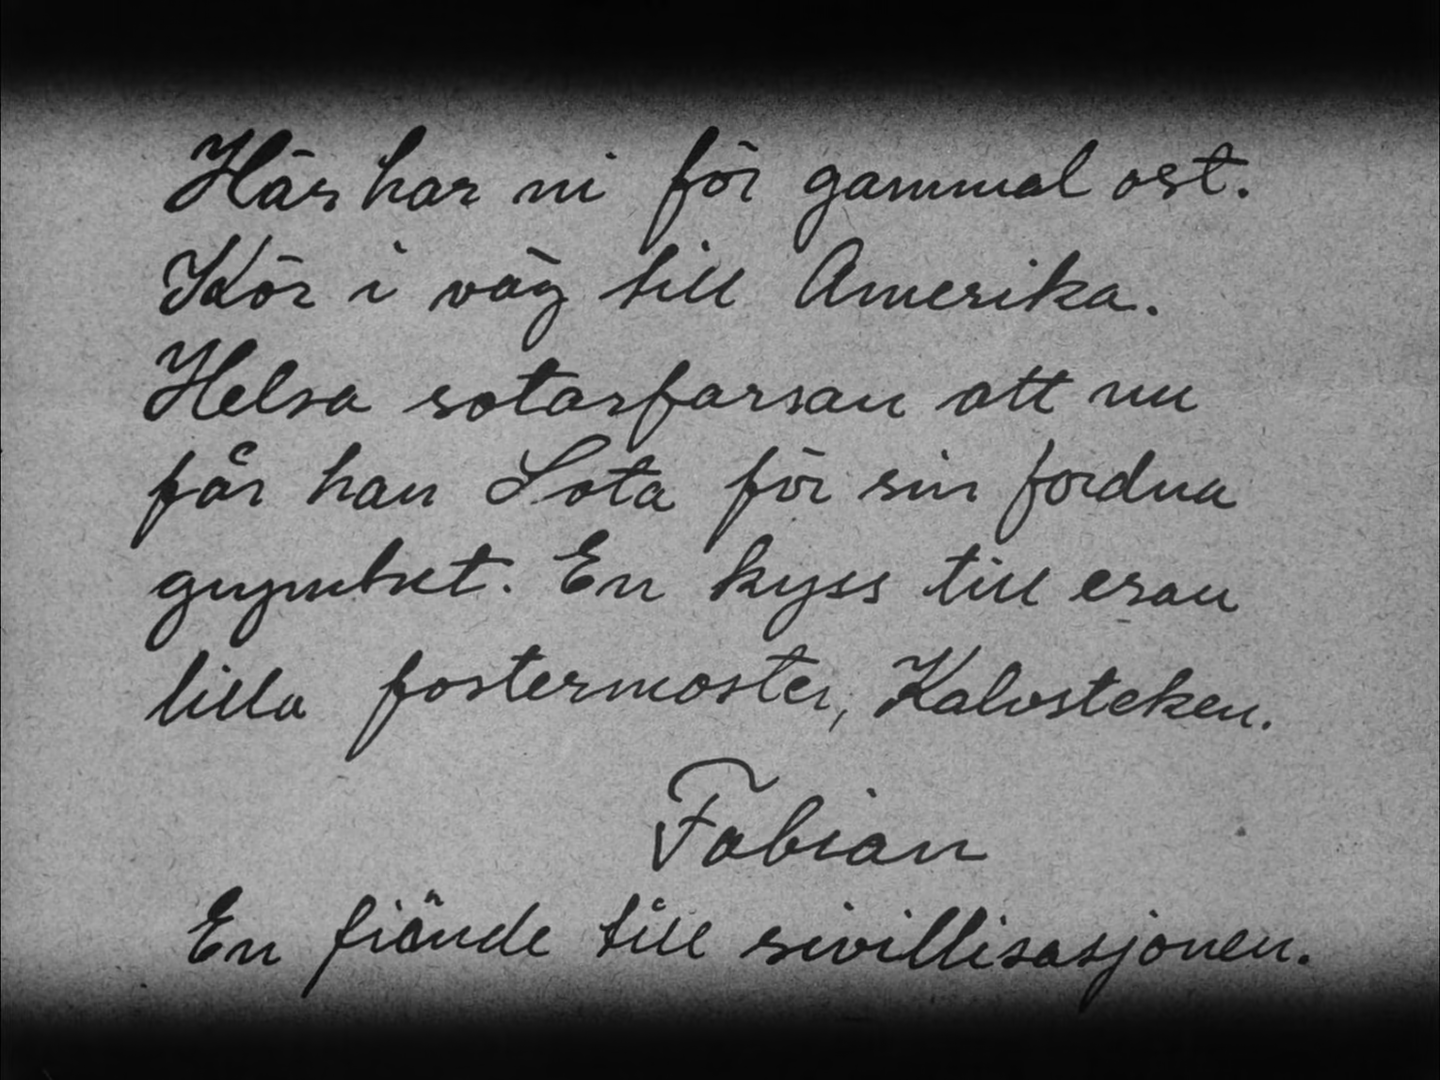 Här har ni för gammal ost.
Kör i väg till Amerika.
Helsa sotarfarsan att nu
får han Sota för sin fordna
En kyss till eran
lilla fostermoster, Kalvsteken.
Fabian
En fiände till sivillisasjonen.